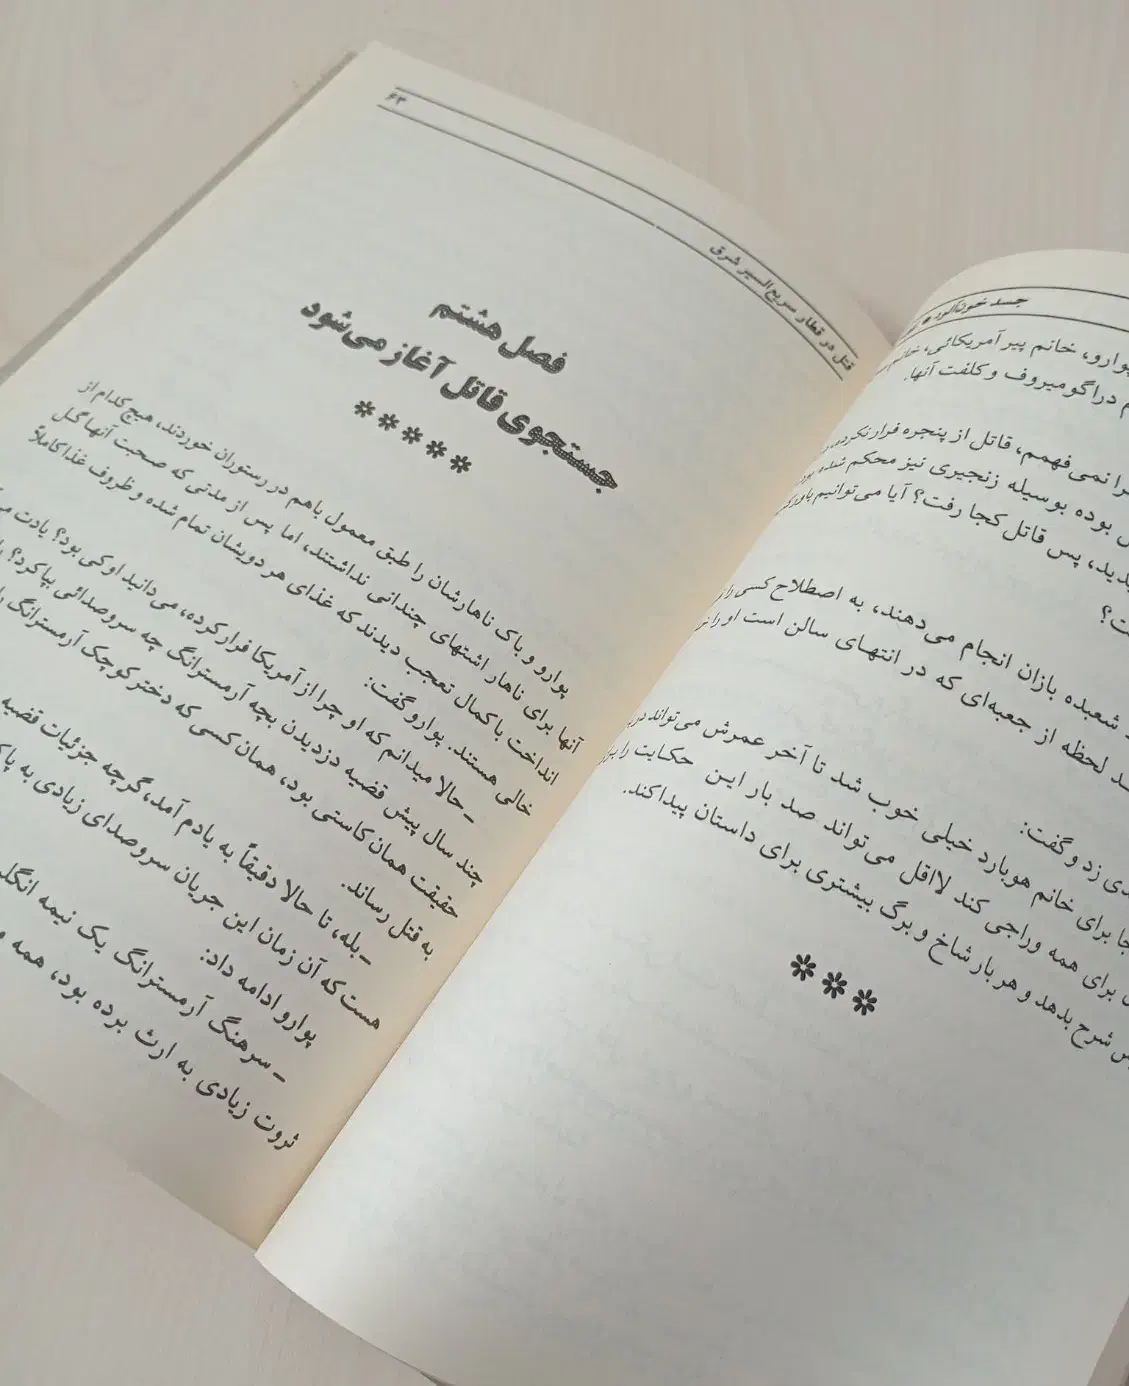 جسد خون‌آلود *
پوارو، خانم پیر آمریکائی، خانم
دراگومیروف و کلفت آنها.
را نمی‌فهمم، قاتل از پنجره فرار نکرده،
بوده بوسیله زنجیری نیز محکم شده بود
پس قاتل کجا رفت؟ آیا می‌توانیم باور کنیم
شعبده بازان انجام می‌دهند، به اصطلاح کسی را
لحظه از جعبه‌ای که در انتهای سالن است او را
زد و گفت:
برای خانم هوبارد خیلی خوب شد تا آخر عمرش می‌تواند در
برای همه وراجی کند لااقل می‌تواند صد بار این حکایت را برای
شرح بدهد و هر بار شاخ و برگ بیشتری برای داستان پیدا کند.
***
قتل در قطار سریع‌السیر شرق
۶۳
فصل هشتم
جستجوی قاتل آغاز می‌شود
*****
پوارو و باک ناهارشان را طبق معمول باهم در رستوران خوردند، هیچ کدام از
آنها برای ناهار اشتهای چندانی نداشتند، اما پس از مدتی که صحبت آنها گل
انداخت با کمال تعجب دیدند که غذای هر دویشان تمام شده و ظروف غذا کاملاً
خالی هستند. پوارو گفت:
ـ حالا میدانم که او چرا از آمریکا فرار کرده، می‌دانید او کی بود؟ یادت
چند سال پیش قضیه دزدیدن بچه آرمسترانگ چه سروصدائی بپا کرد؟
حقیقت همان کاستی بود، همان کسی که دختر کوچک آرمسترانگ را
به قتل رساند.
ـ بله، تا حالا دقیقاً به یادم آمد، گرچه جزئیات قضیه
هست که آن زمان این جریان سروصدای زیادی به پا
پوارو ادامه داد:
ـ سرهنگ آرمسترانگ یک نیمه
ثروت زیادی به ارث برده بود، همه